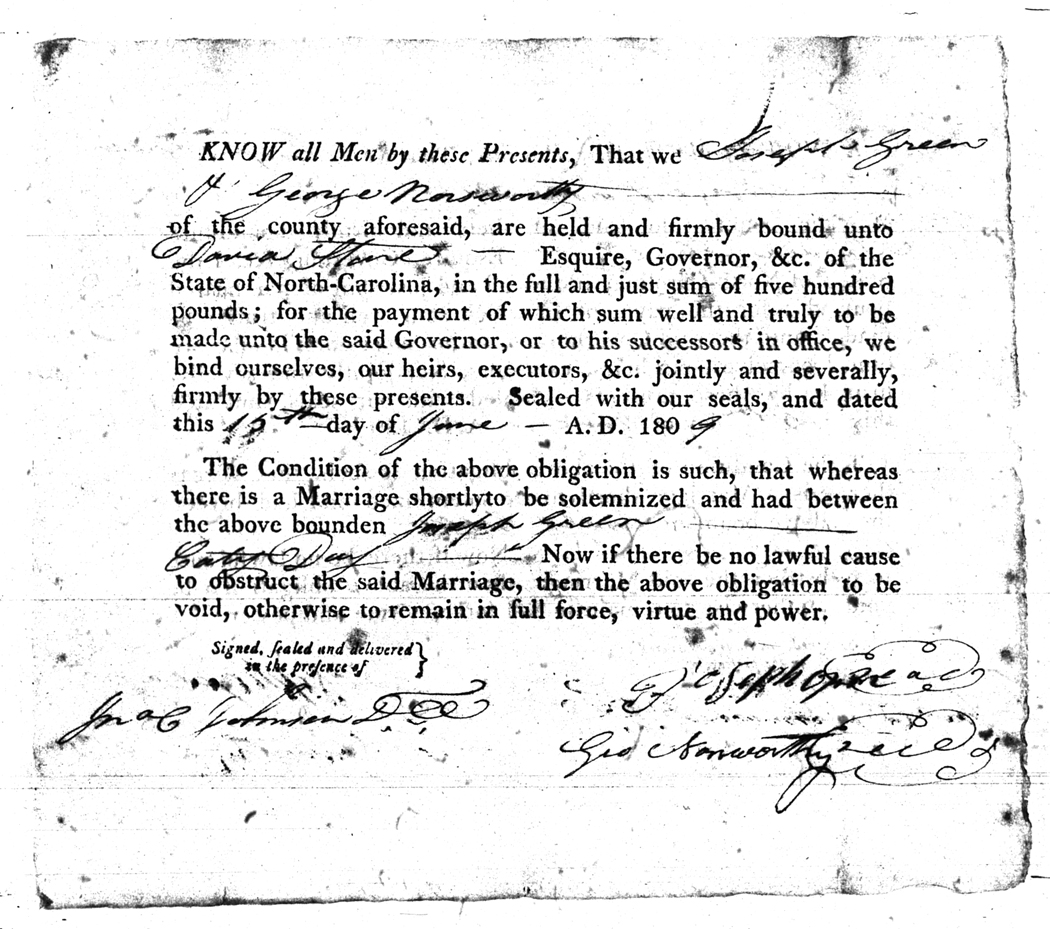 KNOW all Men by these Presents, That we Joseph Green
& George Norsworthy
of the county aforesaid, are held and firmly bound unto
David Stone — Esquire, Governor, &c. of the
State of North-Carolina, in the full and just sum of five hundred
pounds; for the payment of which sum well and truly to be
made unto the said Governor, or to his successors in office, we
bind ourselves, our heirs, executors, &c. jointly and severally,
firmly by these presents. Sealed with our seals, and dated
this 15th day of June — A. D. 1809
The Condition of the above obligation is such, that whereas
there is a Marriage shortlyto be solemnized and had between
the above bounden Joseph Green
Caty Day Now if there be no lawful cause
to obstruct the said Marriage, then the above obligation to be
void, otherwise to remain in full force, virtue and power.
Signed, sealed and delivered }
in the presence of
Joseph Green seal
Jno C Johnson
Geo Norsworthy seal